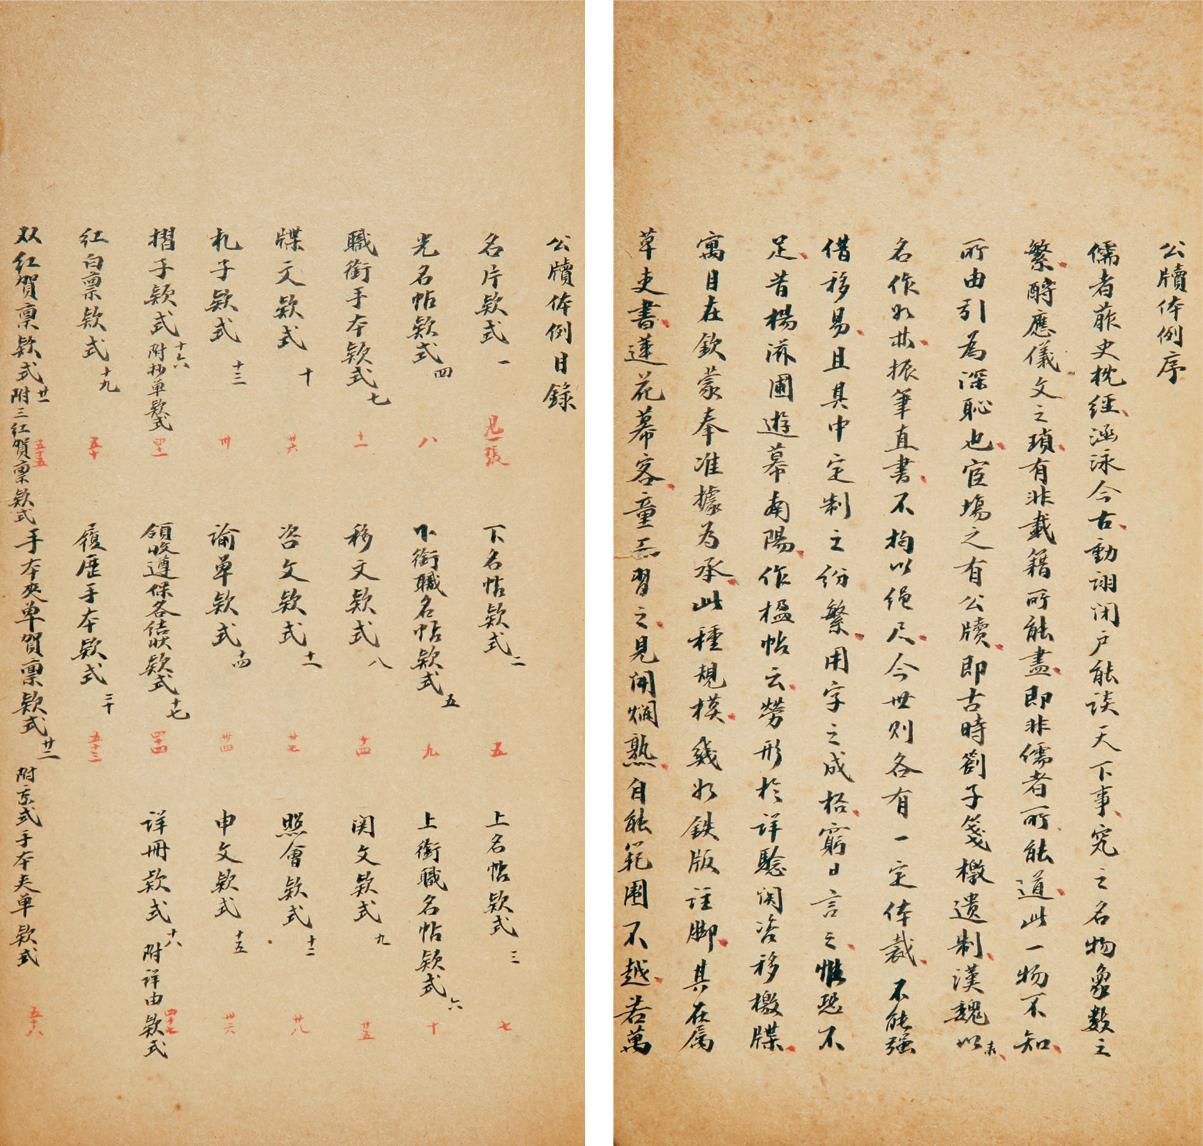 公牘体例序
儒者菔史枕經涵泳今古動詡閉户能談天下事究之名物象数之
繁酧應儀文之瑣有非載籍所能盡即非儒者所能道此一物不知
所由引為深恥也宦塲之有公牘即古時劄子箋檄遺制漢魏以来
名作如林振筆直書不拘以繩尺今世則各有一定体裁不能强
借移易且其中定制之紛繁用字之成格窮日言之惟恐不
足昔楊游圃遊幕南陽作楹帖云勞形於詳驗関咨移檄牒
寓目在欽蒙奉准據為承此種規模幾如鉄版註脚其在属
草吏書蓮花幕客童而習之見聞嫻熟自能範圍不越若萬
公牘体例目錄
名片欵式一 見一張 下名帖欵式二 五 上名帖欵式三 七
光名帖欵式四 八 下銜職名帖欵式五 九 上銜職名帖欵式六 十
職銜手本欵式七 十一 移文欵式八 十四 関文欵式九 廿五
牒文欵式十 廿六 咨文欵式十一 廿七 照會欵式十二 廿八
札子欵式十三 卅 諭单欵式十四 卅四 申文欵式十五 卅六
摺子欵式十六附抄单欵式 四十一 領收遵保各结状欵式十七 四十四 详冊欵式十八附详由欵式 四十七
红白禀欵式十九 五十 履歷手本欵式二十 五十三
双红賀禀欵式廿一附三红賀禀欵式 五十五 手本夾单賀禀欵式廿二附京式手本夹单欵式 五十八